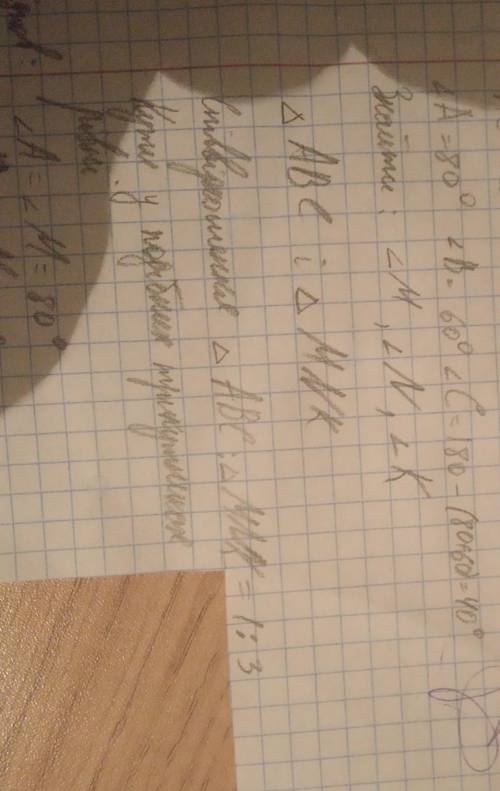 ∠A = 80° ∠B = 60° ∠C = 180 - (80+60) = 40°
Знайти: ∠M, ∠N, ∠K
△ ABC i △ MNK
△ ABC : △ MNK = 1:3
Кути у подібних трикутників
рівні
∠A = ∠M = 80°